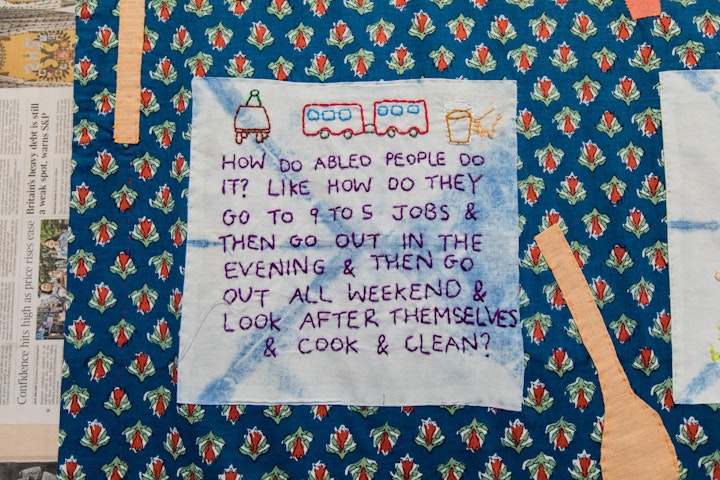 HOW DO ABLED PEOPLE DO
IT? LIKE HOW DO THEY
GO TO 9 TO 5 JOBS &
THEN GO OUT IN THE
EVENING & THEN GO
OUT ALL WEEKEND &
LOOK AFTER THEMSELVES
& COOK & CLEAN?
Britain's heavy debt is still
a weak spot, warns S&P
Confidence hits high as price rises ease